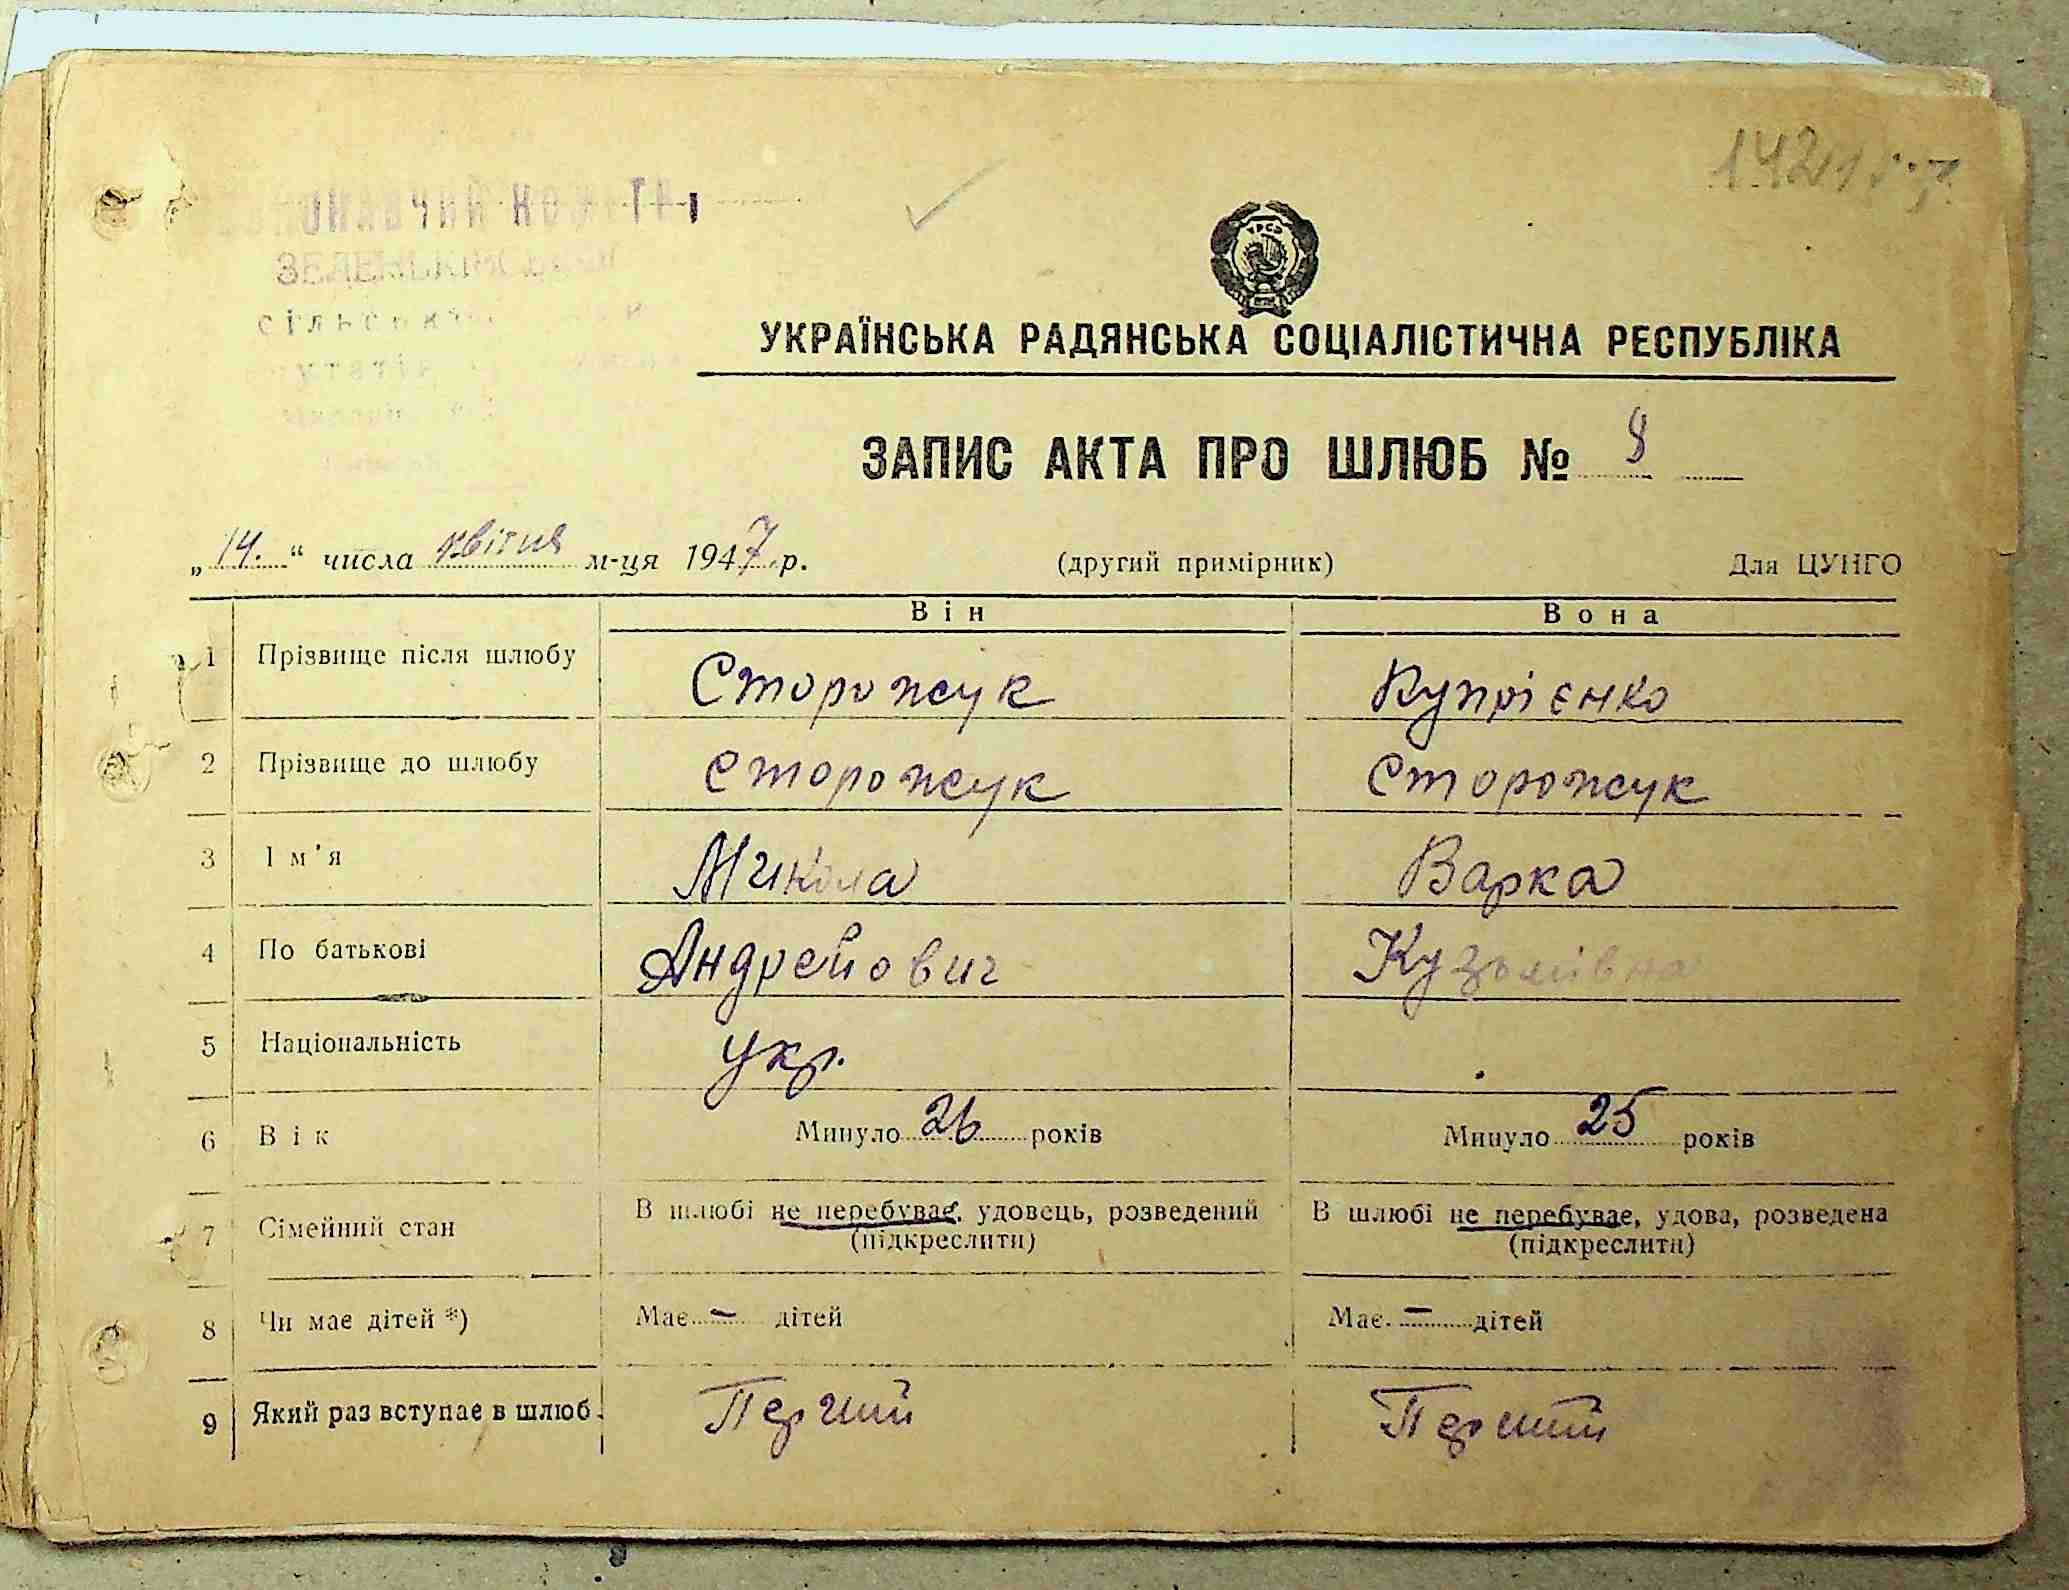 УКРАЇНСЬКА РАДЯНСЬКА СОЦІАЛІСТИЧНА РЕСПУБЛІКА
ЗАПИС АКТА ПРО ШЛЮБ № 8
„14.“ числа квітня м-ця 1947 р. (другий примірник) Для ЦУНГО
Він Вона
1 Прізвище після шлюбу Сторожук Купрієнко
2 Прізвище до шлюбу Сторожук Сторожук
3 Ім'я Микола Варка
4 По батькові Андрейович Кузьмівна
5 Національність Укр.
6 Вік Минуло 26 років Минуло 25 років
7 Сімейний стан В шлюбі не перебуває, удовець, розведений В шлюбі не перебуває, удова, розведена
(підкреслити) (підкреслити)
8 Чи має дітей *) Має – дітей Має – дітей
9 Який раз вступає в шлюб Перший Перший